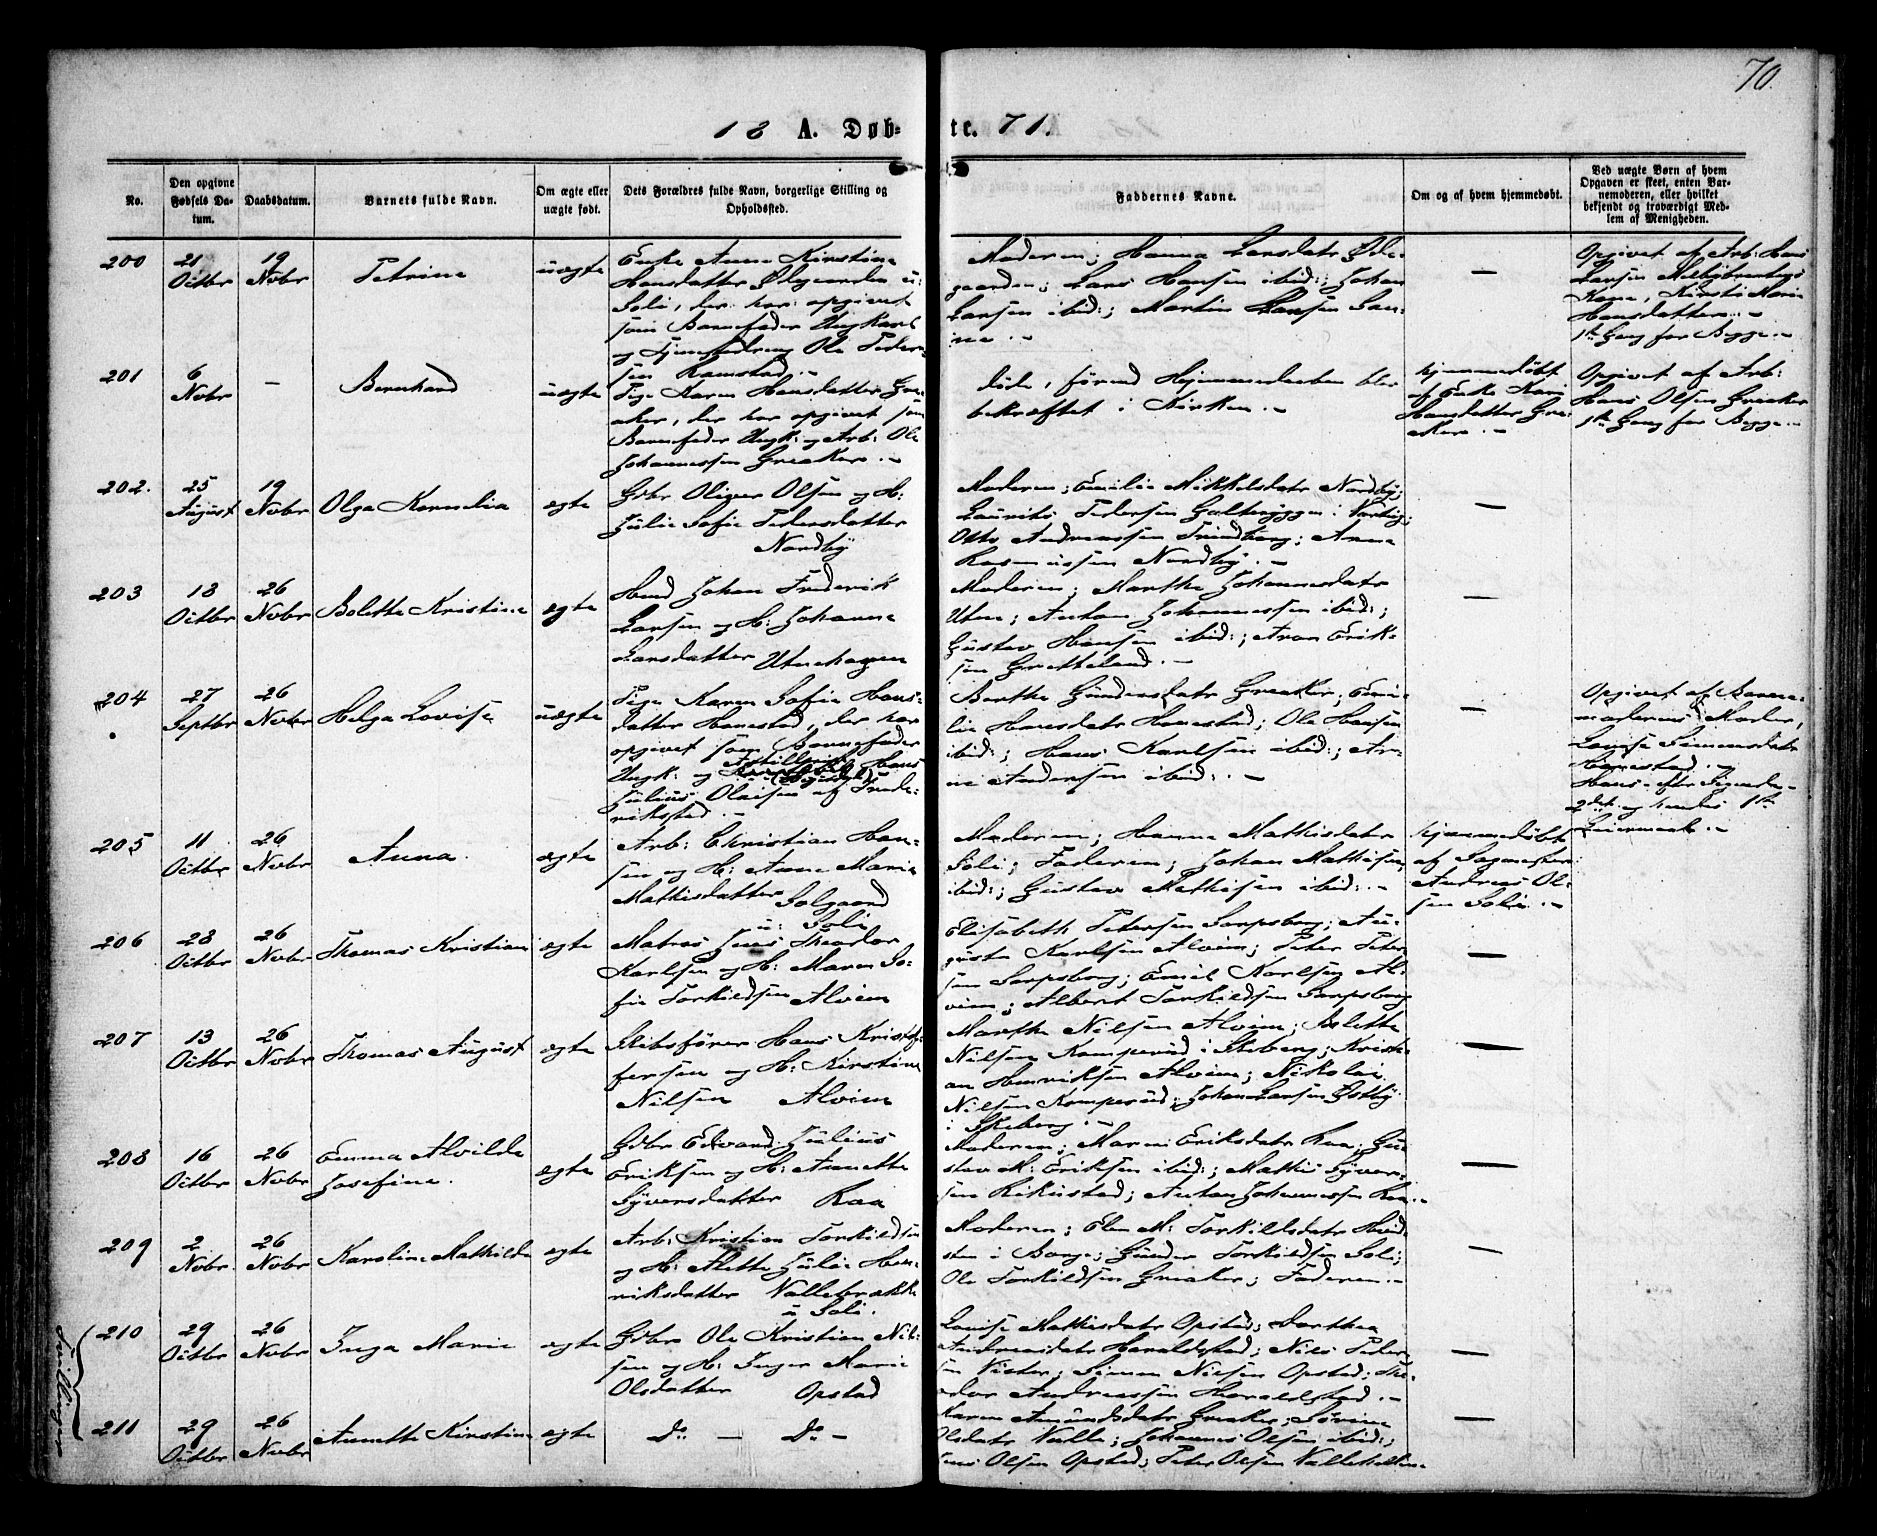 70.
18 A. Døb-te. 71.
No.
Den opgivne Fødsels Datum.
Daabsdatum.
Barnets fulde Navn.
Om ægte eller uægte født.
Dets Forældres fulde Navn, borgerlige Stilling og Opholdssted.
Faddernes Navne.
Om og af hvem hjemmedøbt.
Ved uægte Børn af hvem Opgaven er skeet, enten Barnemoderen, eller hvilket bekjendt og troværdigt Medlem af Menigheden.
200
21 Octbr
19 Novbr
Petrine
uægte
Enke Anne Kirstine
Hansdatter Ølgaarden u:
Soli, der har opgivet
som Barnefader Ungkarl
og Ole Peder-
sen Ramstad.-
Moderen; Hanna Larsdatr Øle-
gaarden; Lars Hansen ibid:; Johan
Larsen ibid:; Martin Larsen San-
ne.-
—
Opgivet af Arb: Hans
Larsen
Kone, Kirsti Marie
Hansdatter.-
1ste Gang for Begge.-
201
6 Novbr
—
Bernhard
uægte
Pige Karen Hansdatter Gre-
aker, der har opgivet som
Barnefader Ungk: og Arb: Ole
Johannessen Greaker.-
døde, førend Hjemmedaaben blev
bekræftet i Kirken.-
hjemmedøbt
af Enke Kari
Hansdatter Gre-
aker.-
Opgivet af Arb:
Hans Olsen Greaker
1ste Gang for Begge.-
202.
25 August
19 Novbr
Olga Kornelia
ægte
Gdbr Oliver Olsen og H:
Julie Sofie Pedersdatter
Nordby
Moderen; Emilie Mikkelsdatr Nordby;
Laurits Pedersen i Varteig;
Otto Andreassen Tindberg; Arne
Rasmussen Nordby.-
—
203
18 Octbr
26 Novbr
Bolette Kristine
ægte
Hmd Johan Frederik
Larsen og H: Johanne
Larsdatter Utnehagen
Moderen; Marthe Johannesdatr
Utne; Anton Johannessen ibid:;
Gustav Hansen ibid:; Aron Erik-
sen Gretteland.-
—
204
27 Septbr
26 Novbr
Helga Lovise
uægte
Pige Karen Sofie Hans-
datter Hanestad, der har
opgivet som Barnefader
Ungk: og Hans
Julius Olaisen af Frede-
rikstad.-
Berthe Gundersdatr Greaker; Emi-
lie Hansdatr Hanestad; Ole Hansen
ibid:; Hans Karlsen ibid:; Ar-
ne Andersen ibid:.-
—
Opgivet af Barne-
moderens Moder,
Lovise Simensdatr
Hanestad.-
Hans efter Sigende
2det og hendes 1ste
Leiermaal.-
205
11 Octbr
26 Novbr
Anna.
ægte
Arb: Christian Han-
sen og H: Anne Marie
Mathisdatter Solgaard
u: Soli
Moderen; Hanne Mathisdatr
Soli; Faderen; Johan Mathisen
ibid:; Gustav Mathisen ibid:.-
hjemmedøbt
af Sagmester
Andreas Ol-
sen Soli.-
206
28 Octbr
26 Novbr
Thomas Kristian
ægte
Matros Jens Theodor
Karlsen og H: Maren So-
fie Torkildsen Alvim
Elisabeth Petersen Sarpsborg; Au-
gusta Karlsen Alvim; Peter Peter-
sen Sarpsborg; Emil Karlsen Al-
vim; Albert Torkildsen Sarpsborg
—
207
13 Octbr
26 Novbr
Thomas August
ægte
Skibsfører Hans Kristof-
fersen og H: Kirstine
Nilsen Alvim
Marthe Nilsen Alvim; Bolette
Nilsen Kamperud i Skeberg; Kristi-
an Henriksen Alvim; Nikolai
Nilsen Kamperud; Johan Larsen Østby
i Skeberg.-
—
208
16 Octbr
26 Novbr
Emma Alvilde
Josefine.
ægte
Gdbr Edvard Julius
Eriksen og H: Annette
Syversdatter Raa
Moderen; Maren Eriksdatr Raa; Gu-
stav M: Eriksen ibid:; Mathis Syver-
sen Rikustad; Anton Johannessen Raa.-
—
209
2 Novbr.
26 Novbr
Karoline Mathilde
ægte
Arb: Kristian Torkildsen
og H: Alette Julie Hen-
riksdatter Vallebrække
u Soli.
Moderen; Elen M: Torkildsdatr Hvid-
sten i Borge; Gunder Torkildsen Soli;
Ole Torkildsen Greaker; Faderen.-
—
Tvillinger
210
29 Octbr
26 Novbr
Inga Marie
ægte
Gdbr Ole Kristian Nil-
sen og H: Inger Marie
Olsdatter Opstad
Lovise Mathisdatr Opstad; Dorthea
Andreasdatr Haraldstad; Nils Peder-
sen Vister; Simen Nilsen Opstad; The-
odor Andreassen Haraldstad.-
—
211
29 Octbr
26 Novbr
Annette Kirstine
ægte
Do — Do —
Karen Amundsdatr Greaker; Severine
Olsdatr Valle; Johannes Olsen ibid:;
Jens Olsen Opstad; Peter Olsen
—